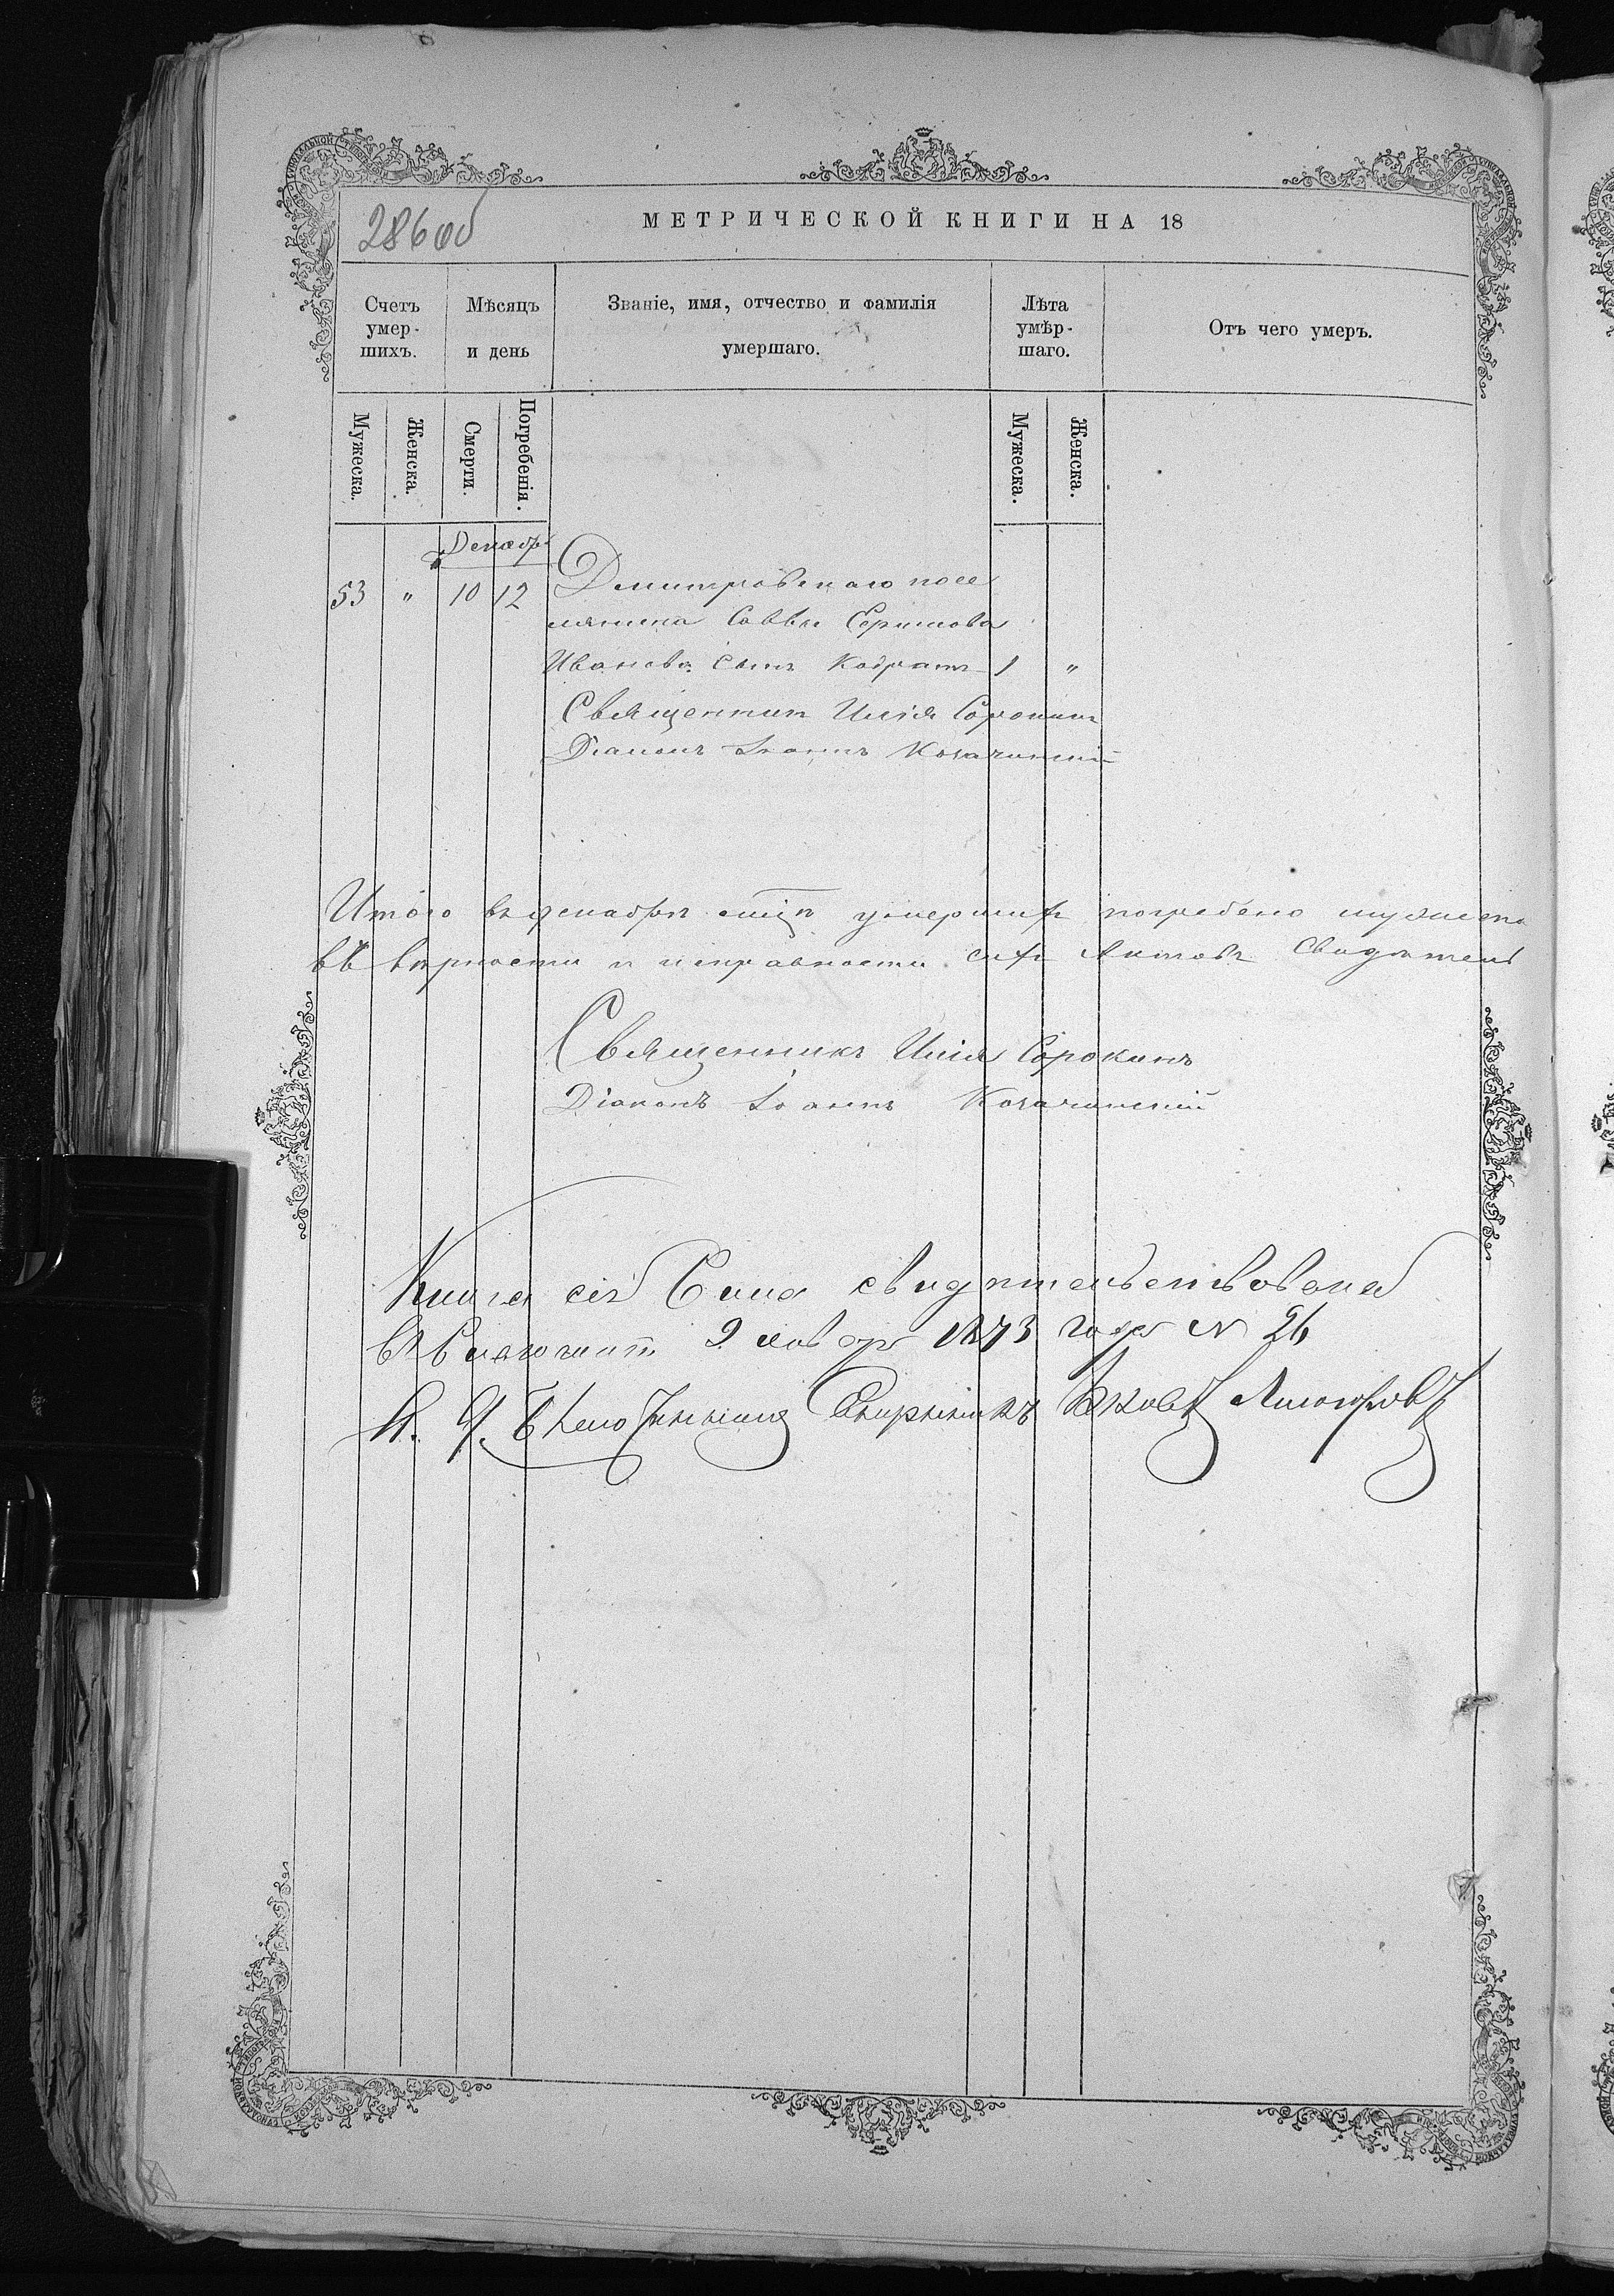 286 об
МЕТРИЧЕСКОЙ КНИГИ НА 18
Счетъ умер-шихъ.
Мѣсяцъ и день
Званіе, имя, отчество и фамилія умершаго.
Лѣта умѣр-шаго.
Отъ чего умеръ.
Мужеска.
Женска.
Смерти.
Погребенія.
Мужеска.
Женска.
Декабрь
53 " 10 12 Дмитровскаго посе
лянина Саввы
Иванова сынъ Кодратъ 1 "
Священникъ Илія Сорокинъ
Діаконъ Іоаннъ Козачинскій
Итого въ декабрѣ мѣц умершихъ погребено мужеска
въ вѣрности и исправности сихъ Актовъ свидѣтель
Священникъ Илія Сорокинъ
Діаконъ Іоаннъ Козачинскій
Книга сія свидѣтельствована
въ 9 января 1873 года N 26
Яковъ